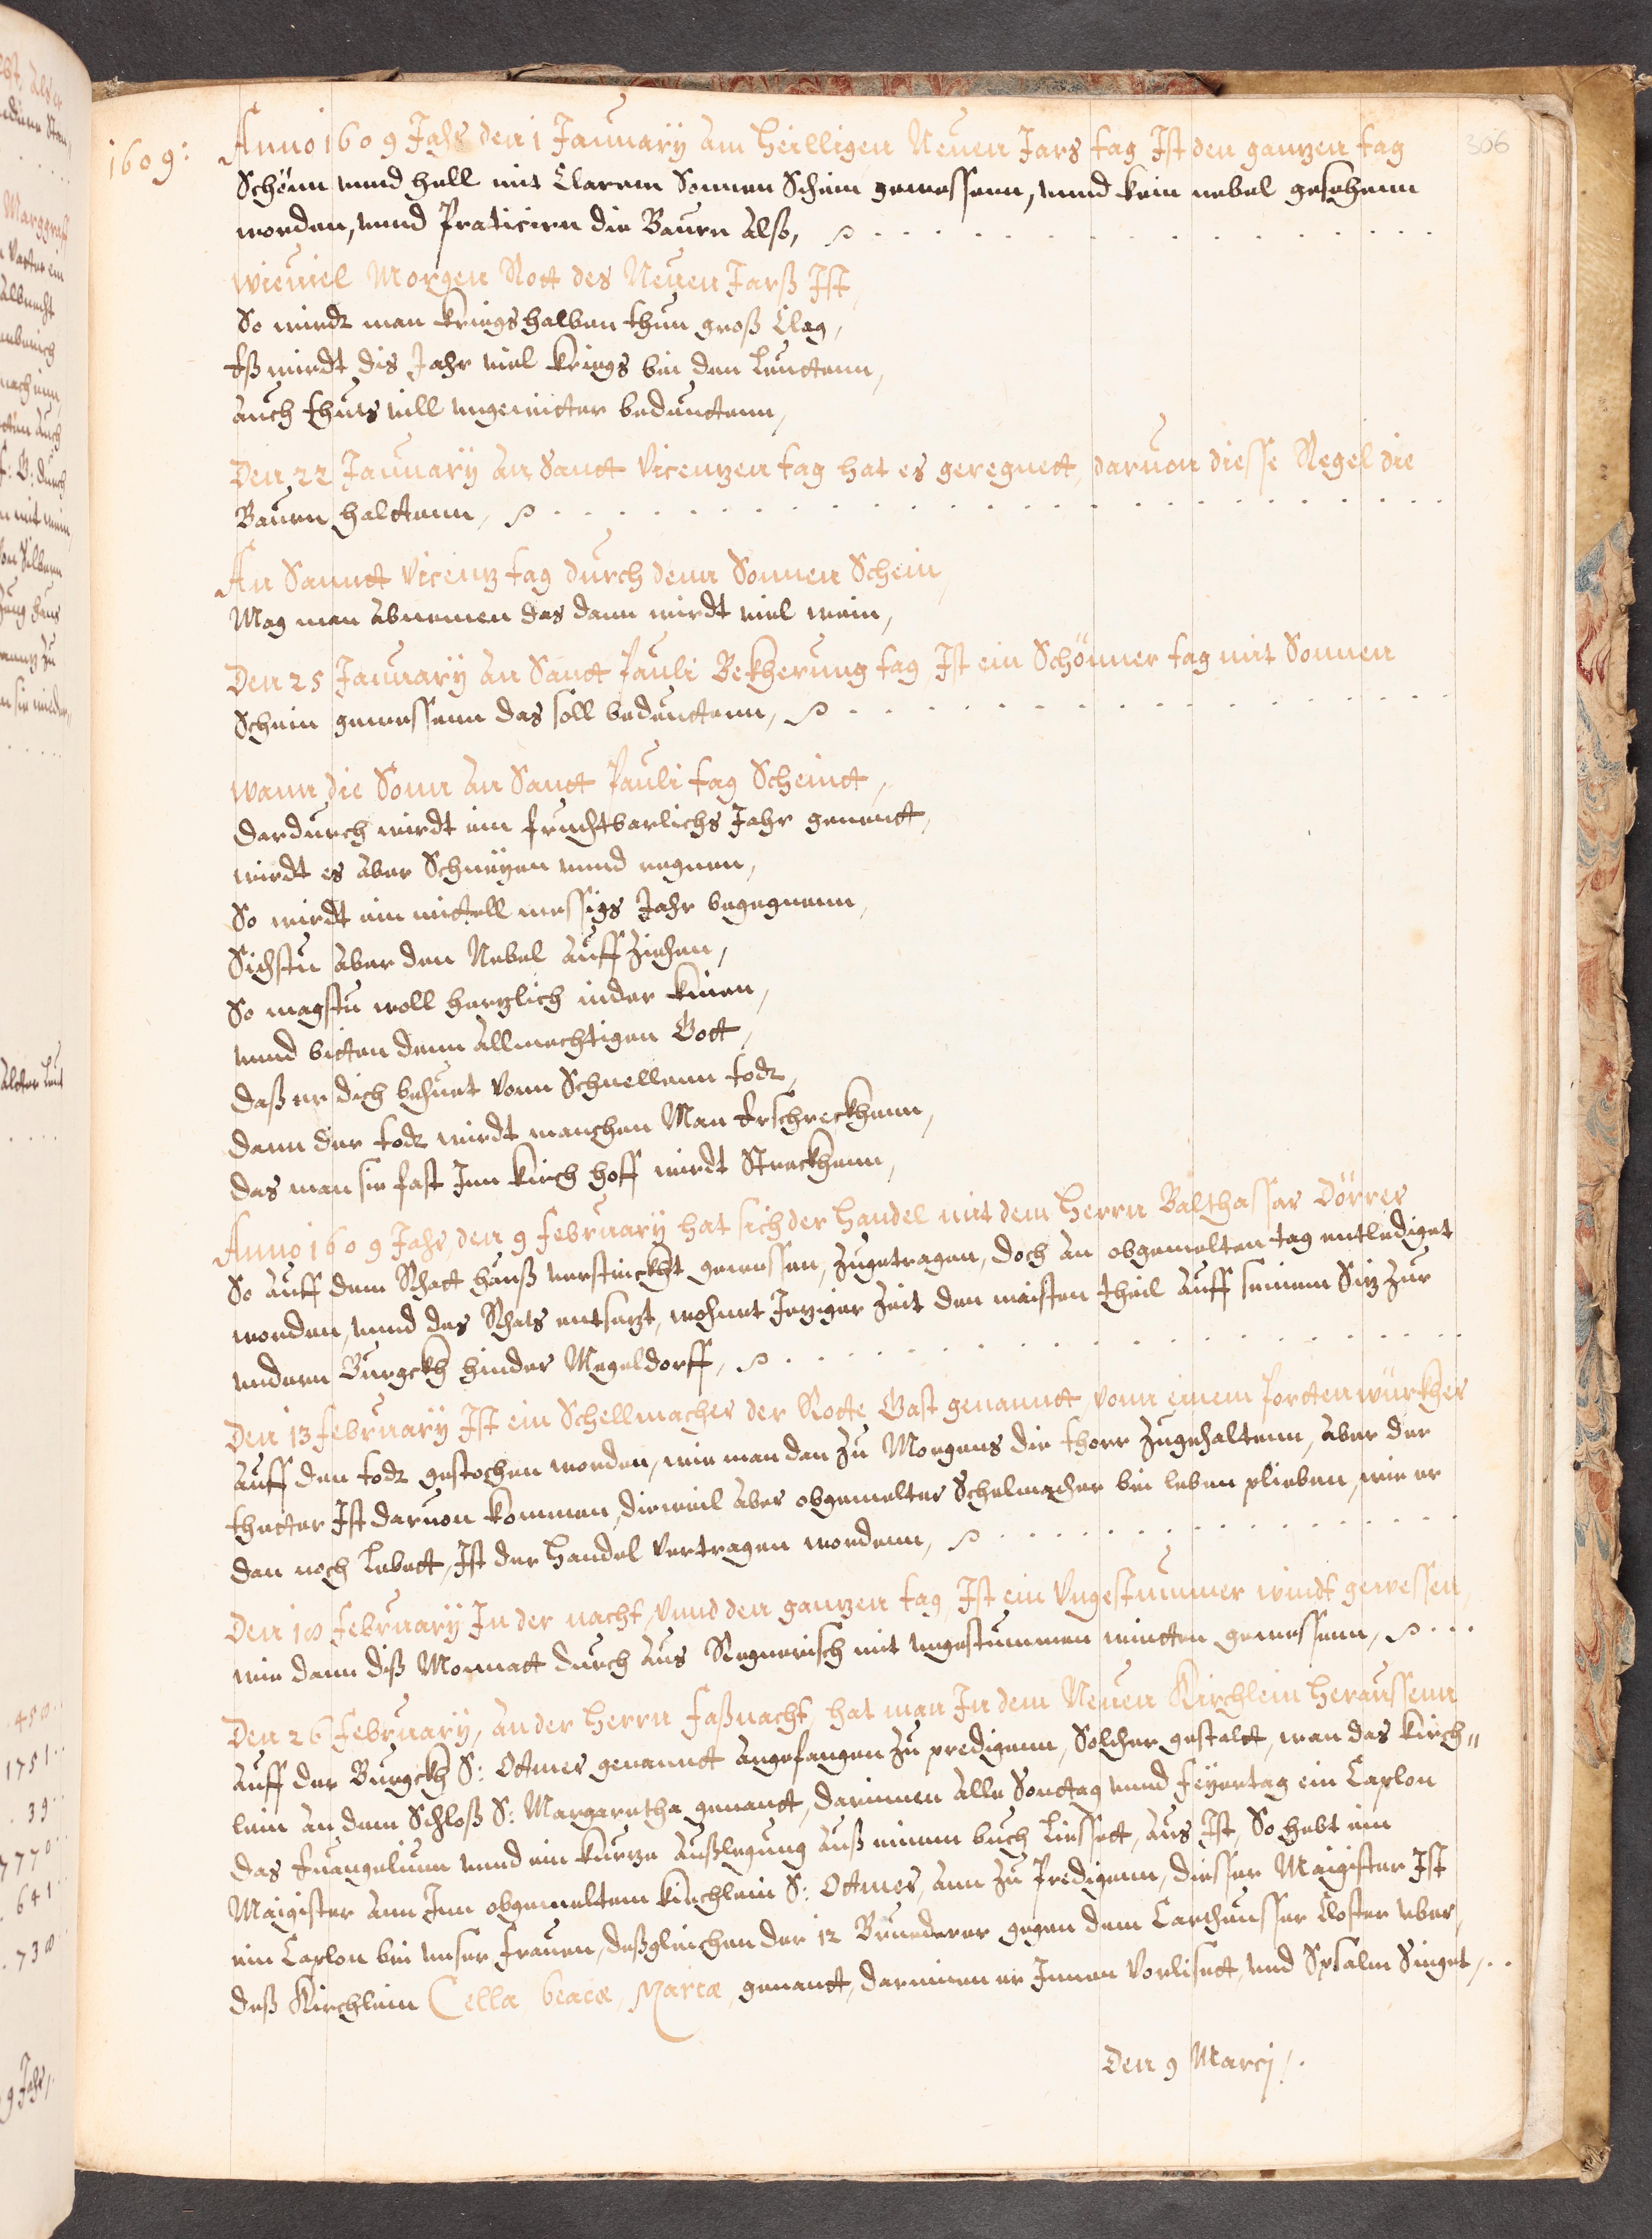 306
1609:
Anno 1609 Jahr den 1 January am heilligen Neuen Jars tag Ist den ganzen tag
Schönn unnd hell mit Clarem Sonnen Schein gewessenn, unnd kein nebel gesehenn
worden, unnd Praticirn die Baurn Also,
wieviel Morgen Rott des Neuen Jarß Ist,
So wirdt man kriegs halben thun groß Clag,
Eß wirdt dis Jahr viel kriegs bei den Leuttenn,
Auch thuts vill ungewitter bedeuttenn,
Den 22 January An Sanct Vicenzen tag hat es geregnett, darvon diesse Regel die
Baurn halttenn,
An Sannct Vicenz tag durch denn Sonnen Schein,
Mag man Abnemen das dann wirdt viel wein,
Den 25 January An Sanct Pauli Bekherung tag Ist ein Schönner tag mit Sonnen
Schein gewessenn das soll bedeuttenn,
Wann die Sonn An Sanct Pauli tag Scheintt,
Dardurch wirdt ein fruchtbarlichs Jahr gement,
wirdt es Aber Schneyen unnd regnen,
So wirdt ein mittell messigs Jahr begegnenn,
Sichstu Aber den Nebel Auff ziehen,
So magstu woll herzlich nider knien,
unnd bitten denn Allmechtigen Gott,
Daß er dich behuet vonn Schnellenn todt,
Dann der todt wirdt manchen Man Erschreckhenn,
Das man sie fast Inn kirch hoff wirdt Streckhenn,
Anno 1609 Jahr, den 9 february hat sich der Handel mit dem Herrn Balthassar Dörrer
So Auff dem Rhatt hauß verstrickht gewessen, zugetragen, doch An obgemelten tag entlediget
worden, unnd des Rhats entsezt, wohnet Jeziger zeit den meisten theil Auff seinem Siz zur
undern Burgckh hinder Megeldorff,
Den 13 february Ist ein Schellmacher der Rotte Gast genanntt, vonn einem Porttenwürkher
Auff den todt gestochen worden, wie man dan zu Morgens die thorr zugehaltenn, Aber der
thetter Ist darvon kommen, dieweil Aber obgemelter Schelmacher bei leben plieben, wie er
dan noch Lebett, Ist der Handel vertragen wordenn,
Den 18 february In der nacht, unnd den ganzen tag, Ist ein Ungestimmer windt gewessen,
wie dann diß Monnatt durch Aus Regnerisch mit ungestummen wintten gewessenn,
Den 26 february, An der Herrn faßnacht, hat man In dem Neuen Kirchlein heraussenn
Auff der Burgckh S: Ottmer genannt Angefangen zu predigenn, Solcher gestaltt, wan das kirch„
lein An dem Schloß S: Margaretha genant, darinnen Alle Sonttag unnd feyertag ein Caplon
das Evangelium unnd ein kurze Außlegung Auß einem buch Liessett, Aus Ist, So hebt ein
Maigister Ann Inn obgemeltem kirchlein S: Ottmer, Ann zu Predigenn, diesser Maigister Ist
ein Caplon bei unser frauen, deßgleichen der 12 Bruederer gegen dem Cartheusser Closter uber,
deß Kirchlein Cella beatæ, Mariæ, genantt, darinnen er Innen vorlisett, und Psalm Singet,
Den 9 Marcj